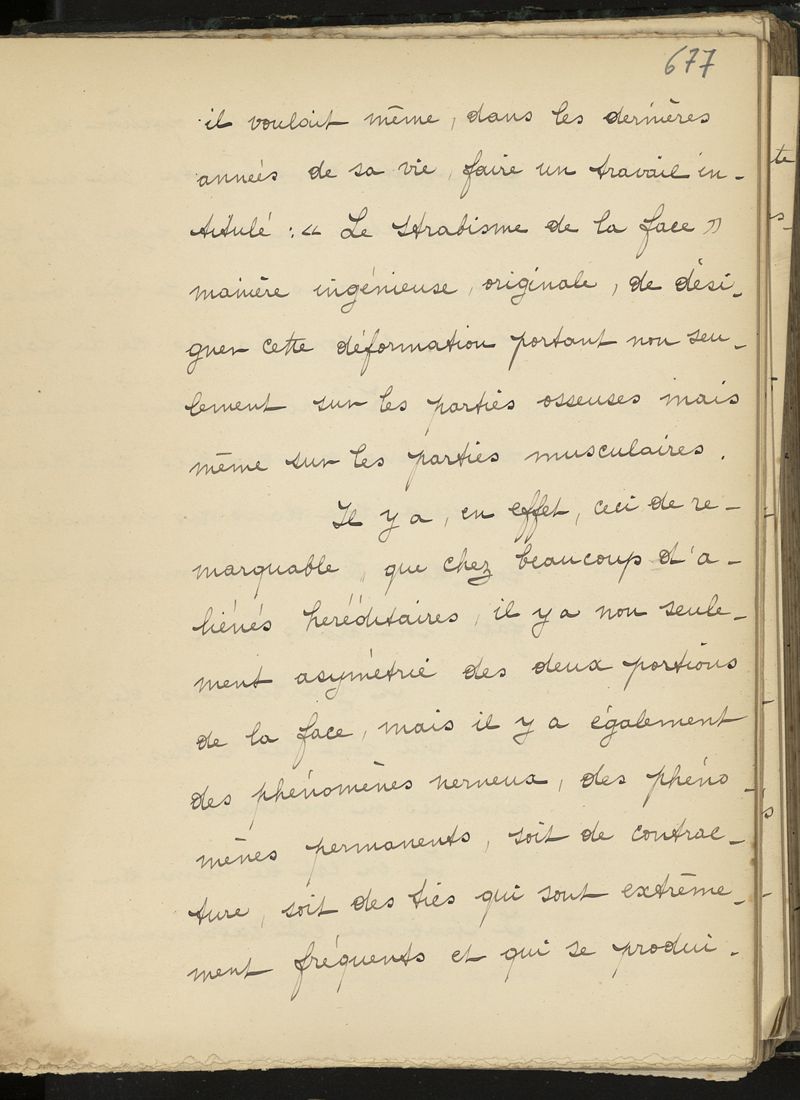 677
il voulait même, dans les dernières
années de sa vie, faire un travail in-
titulé : « Le Strabisme de la face »
manière ingénieuse, originale, de dési-
gner cette déformation portant non seu-
lement sur les parties osseuses mais
même sur les parties musculaires.
Il y a, en effet, ceci de re-
marquable, que chez beaucoup d'a-
liénés heréditaires, il y a non seule-
ment asymétrie des deux portions
de la face, mais il y a également
des phénomènes nerveux, des phéno-
mènes permanents, soit de contrac-
ture, soit des tics qui sont extrême-
ment fréquents et qui se produi-
te
s-
s